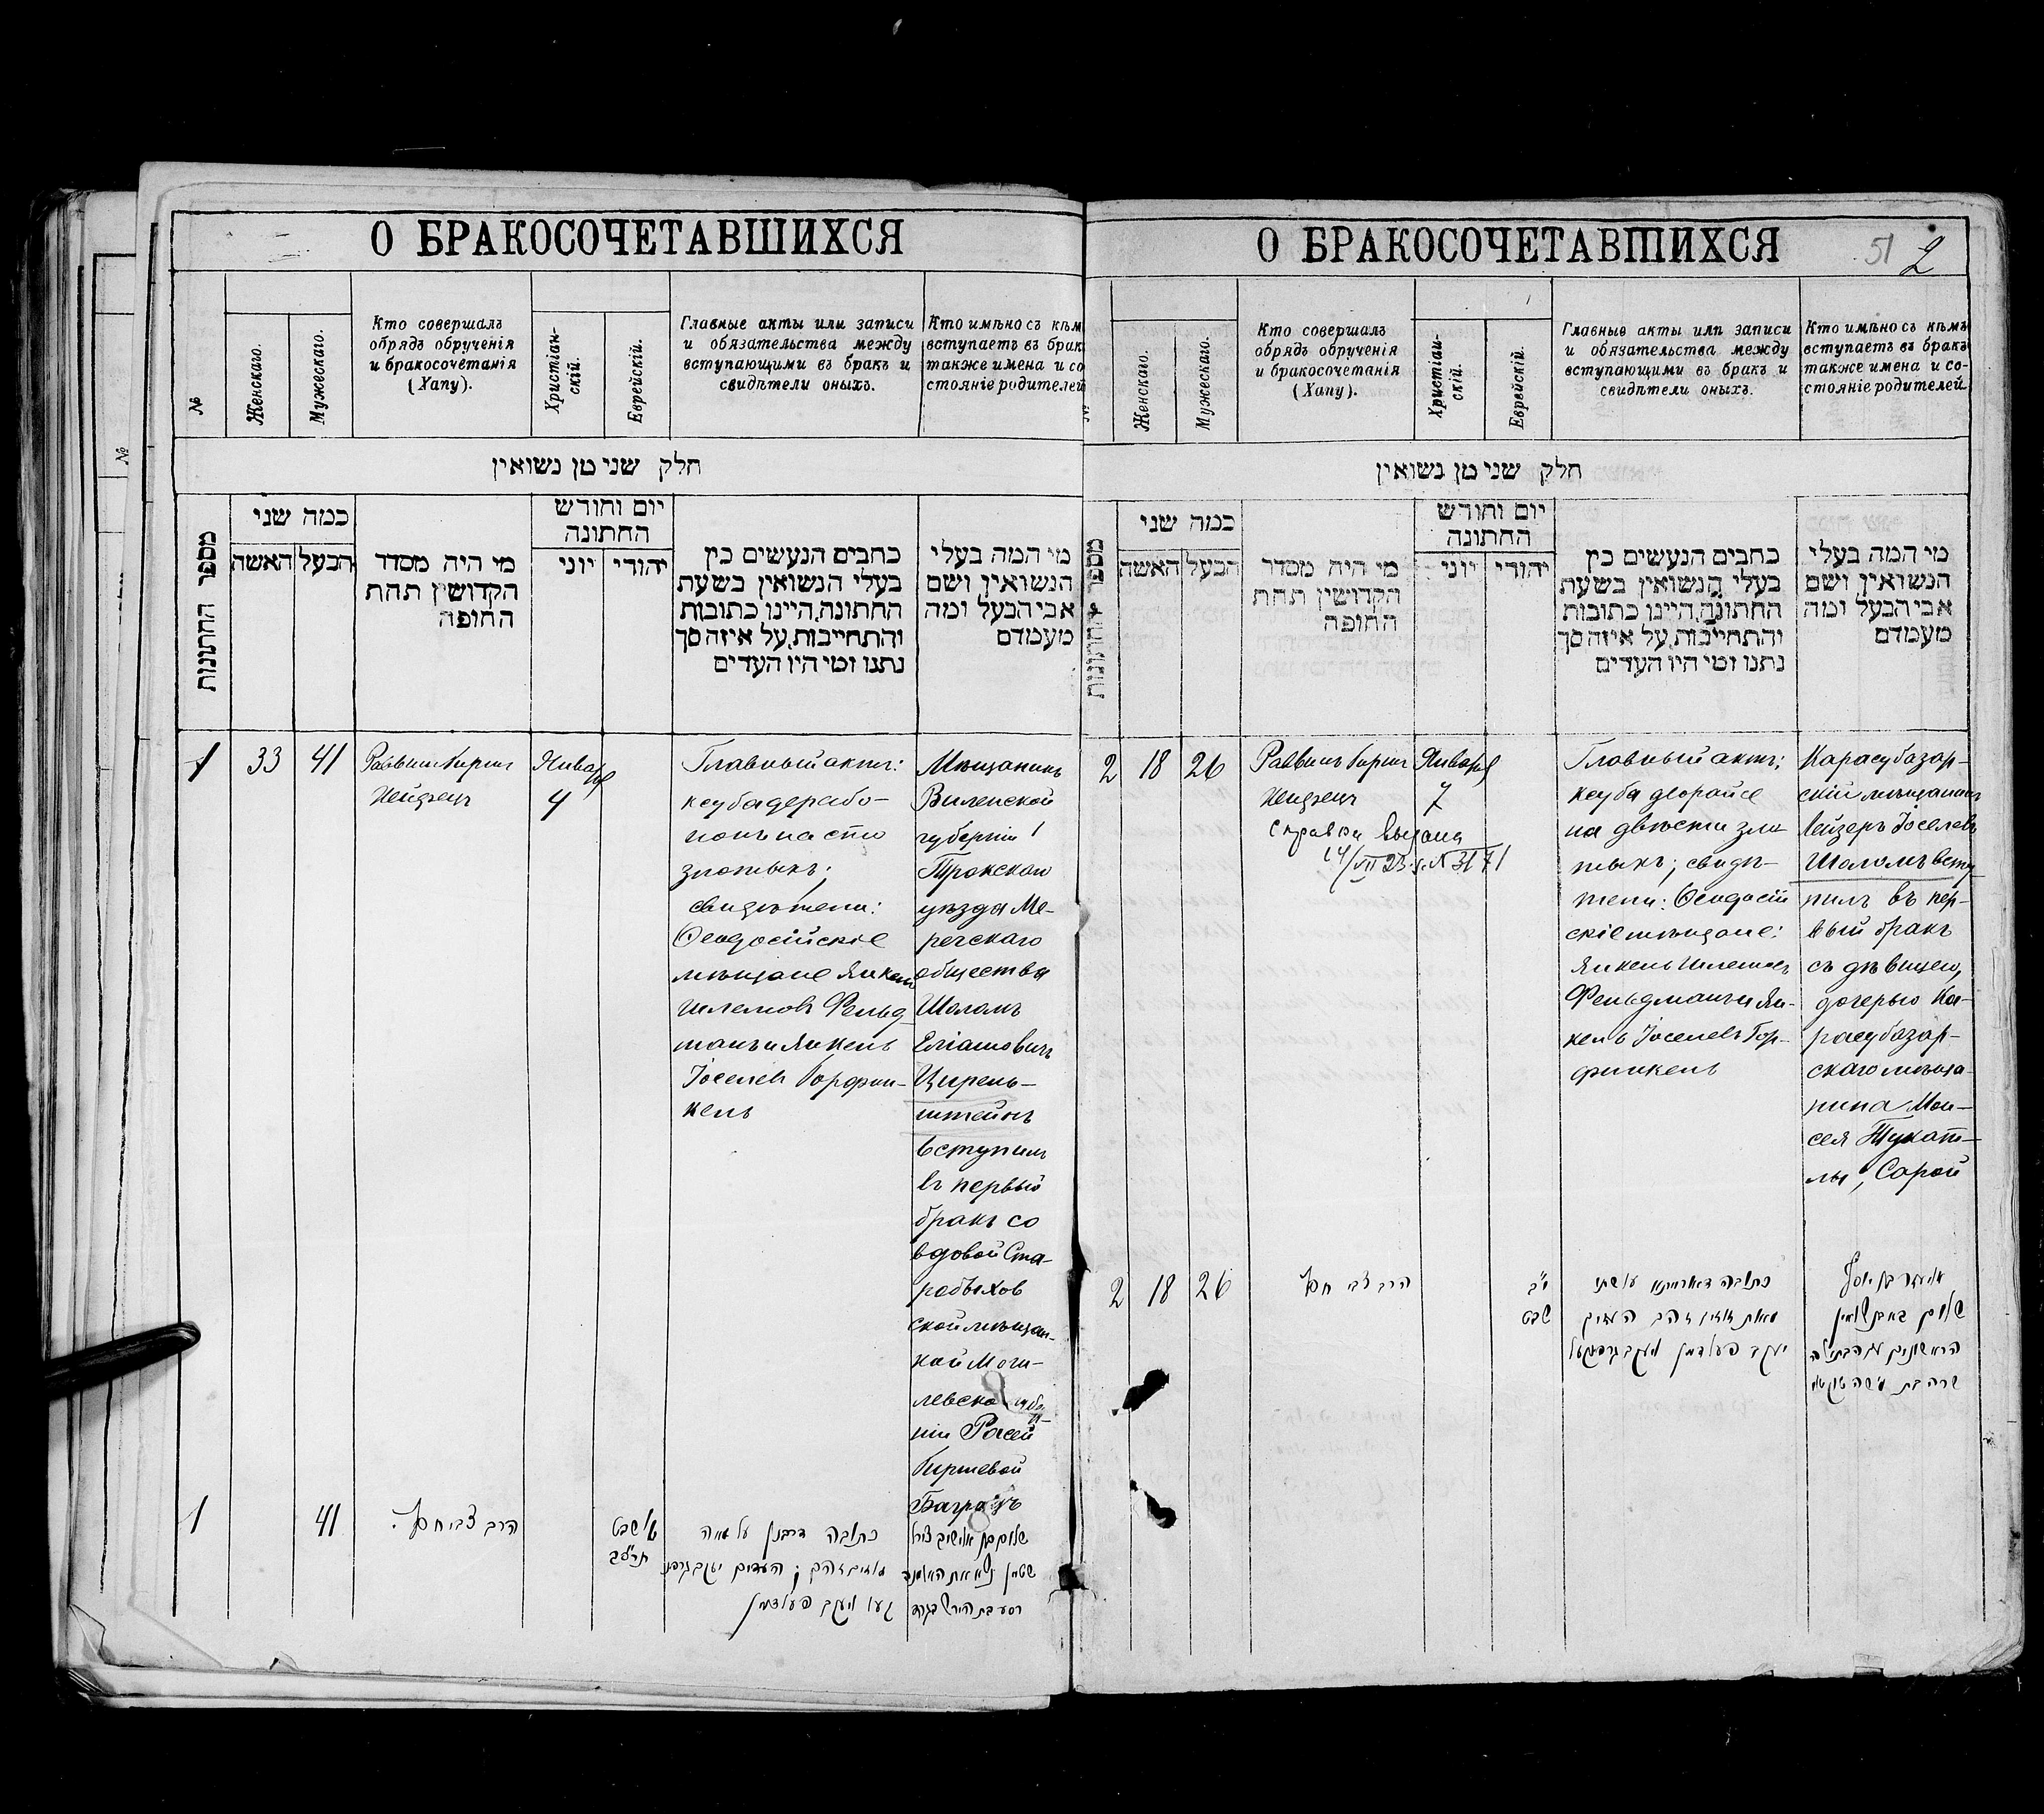 О БРАКОСОЧЕТАВШИХСЯ
№
Женскаго.
Мужескаго.
Кто совершалъ
обрядъ обрученія
и бракосочетанія
(Хапу).
Христіан-
скій.
Еврейскій.
Главные акты или записи
и обязательства между
вступающими въ бракъ и
свидѣтели оныхъ.
Кто имѣно съ кѣм
вступаетъ въ брак
также имена и со
стояніе родителей
חלק שני מן נשואין
מספר החתונות
כמה שני
האשה
הבעל
מי היה מסדר
הקדושין תחת
החופה
יום וחודש
החתונה
יוני
יהודי
כתבים הנעשים בין
בעלי הנשואין בשעת
החתונה, היינו כתובות
והתחייבות, על איזה סך
נתנו ומי היו העדים
מי המה בעלי
הנשואין ושם
אבי הבעל ומה
מעמדם
1
33
41
Раввинъ Гирш
Нейдецъ
Январ
я
4
Главный актъ:
ксуба дерабо-
нонъ на сто
злотыхъ;
свидѣтели:
Ѳеодосійскіе
мѣщане Янкель
Шлемовъ Фельд
манъ и Янкель
Іоселевъ Горфин-
кель
Мѣщанинъ
Виленской
губерніи
Трокскаго
уѣзда Ме-
речскаго
общества
Шоломъ
Еліашовичъ
Цирень-
штейнъ
вступилъ
въ первый
бракъ со
вдовой Ста-
робыхов
ской мѣщан-
кой Моги-
левской губер
ніи Росей
Гиршевой
1
41
הרב צבי
שבט
כתובה דרבנן על מאה
זהב העדים יעקב
ויעקב פעלדמן
שלום בן
О БРАКОСОЧЕТАВШИХСЯ
51 2
Женскаго.
Мужескаго.
Кто совершалъ
обрядъ обрученія
и бракосочетанія
(Хапу).
Христіан-
скій.
Еврейскій.
Главные акты или записи
и обязательства между
вступающими въ бракъ и
свидѣтели оныхъ.
Кто имѣно съ кѣмъ
вступаетъ въ бракъ
также имена и со-
стояніе родителей
חלק שני מן נשואין
מספר החתונות
כמה שני
האשה
הבעל
מי היה מסדר
הקדושין תחת
החופה
יום וחודש
החתונה
יוני
יהודי
כתבים הנעשים בין
בעלי הנשואין בשעת
החתונה, היינו כתובות
והתחייבות, על איזה סך
נתנו ומי היו העדים
מי המה בעלי
הנשואין ושם
אבי הבעל ומה
מעמדם
2
18
26
Раввинъ Гирш
Нейдецъ
Января
7
Справка выдана
14/VII 23 г. N 3171
Главный актъ;
ксуба деорайсе
на двѣсти зло
тыхъ; свидѣ-
тели: Ѳеодосій
скіе мѣщане:
Янкель Шлемовъ
Фельдманъ и Ян-
кель Іоселевъ Гор-
финкель
Карасубазар-
скій мѣщанинъ
Лейзеръ Іоселевъ
Шоломъ всту
пилъ въ пер-
вый бракъ
съ дѣвицею,
дочерью Ка-
расубазар-
скаго мѣща-
нина Мои-
сея
Сарой
2
18
26
הרב צבי
י״ב
שבט
כתובה דאורייתא
מאת זהב העדים
יעקב פעלדמן ויעקב
אליעזר בן יוסף
שלום
שרה בת משה